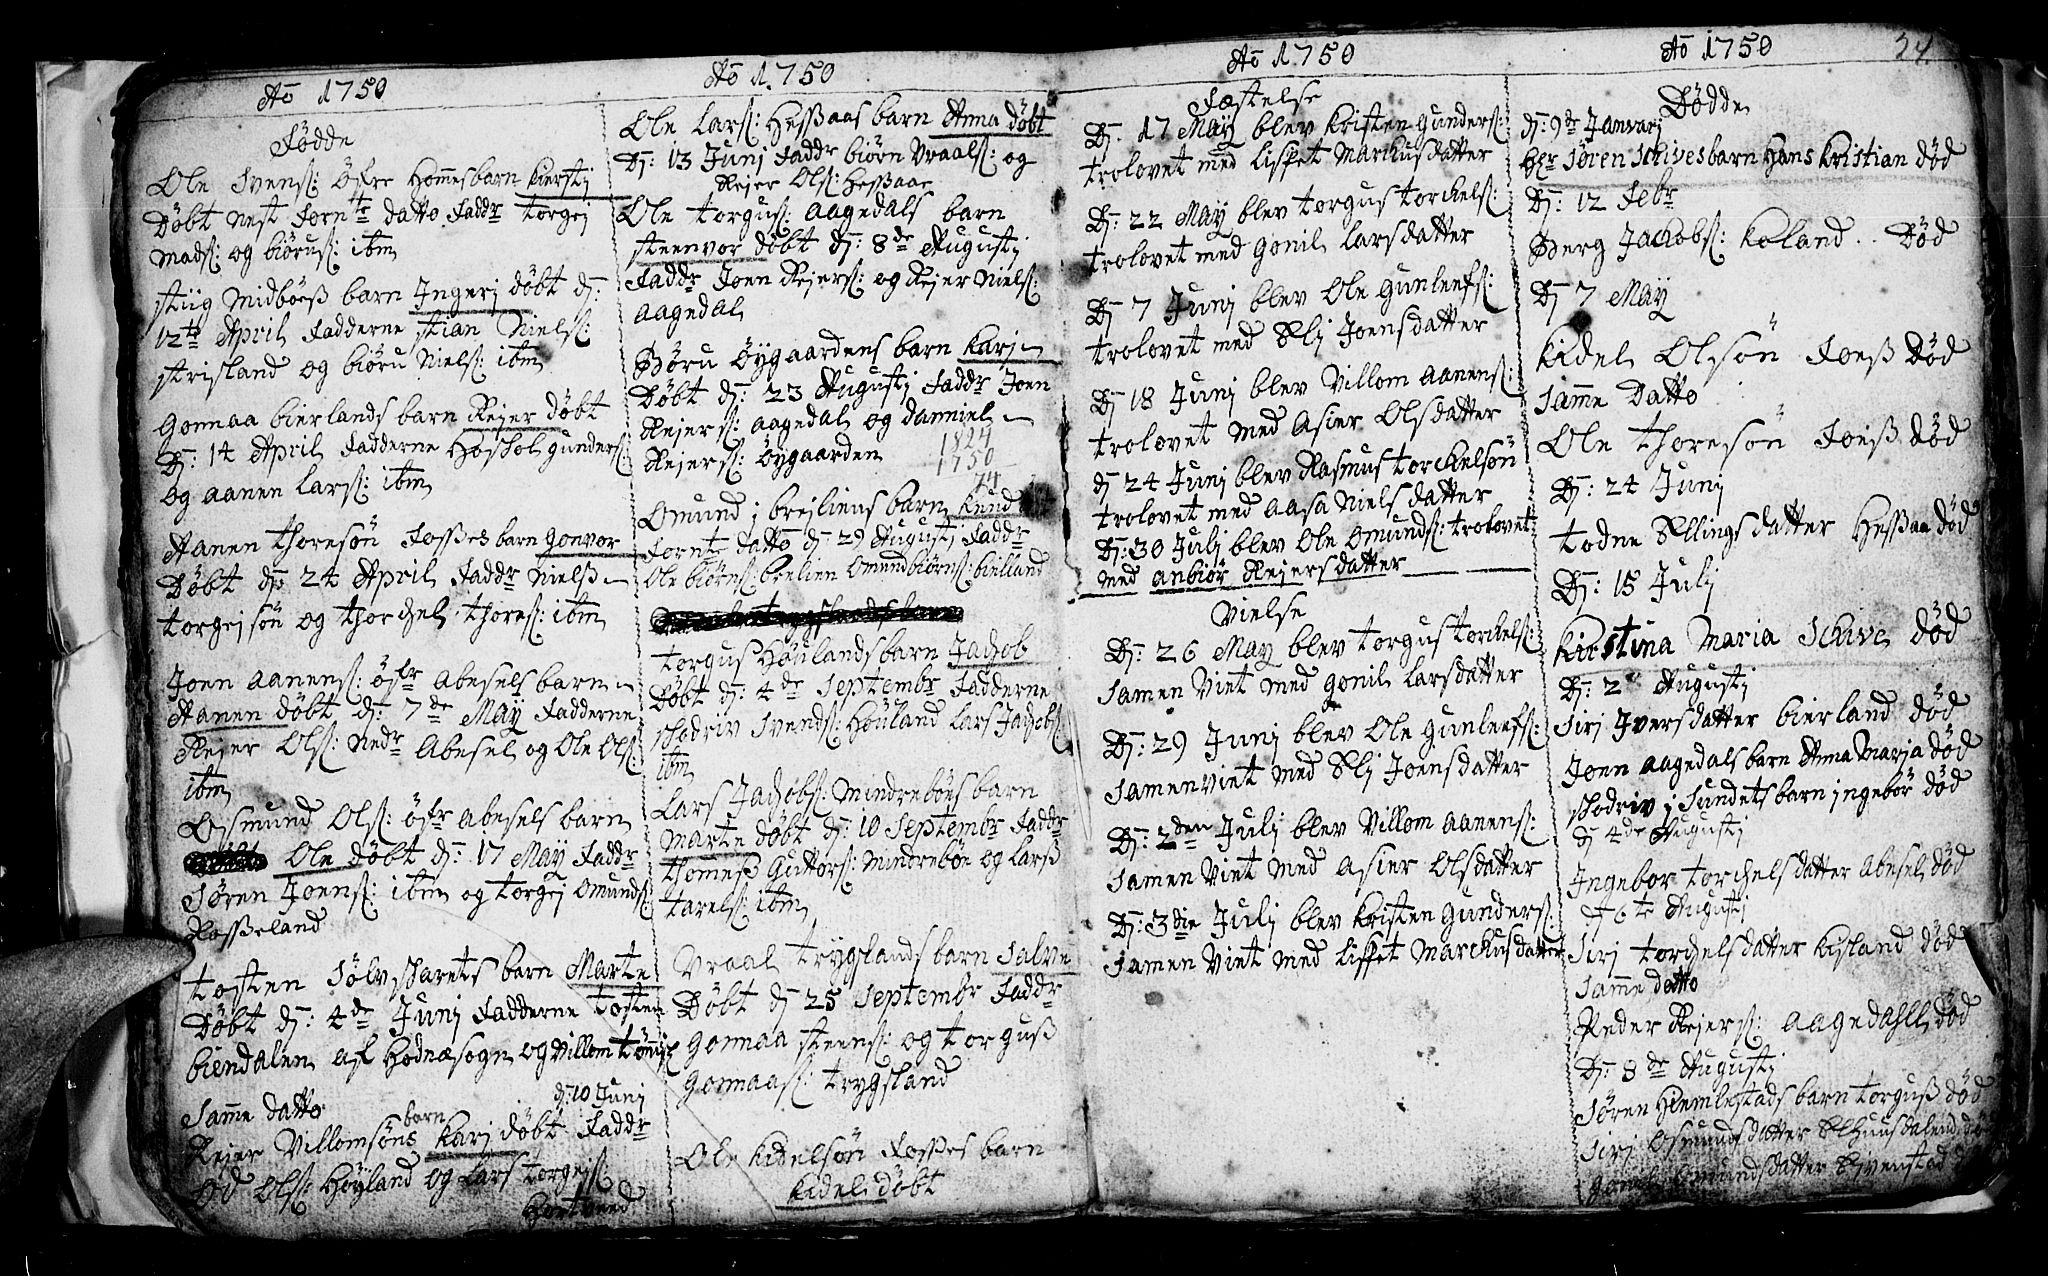 Ao 1750
Fødde
Ole Svens: Öfre Hommesbarn Kierstj
Døbt Nest Forn:te Datto Faddr Torgej
Mads: og Biöru S: ibm
Stiig Midböeß barn Jngerj døbt d:
12te April Fadderne Stian Niels:
Strisland og biöru Niels: ibm
Gonnaa bierlands barn Rejer døbt
D: 14 April Fadderne Hoskol gunders:
og aanen lars: ibm
Aanen Thoresön Foßes barn Gonvor
Døbt d: 24 April Faddr Nielß
torgejsön og Thorchel Thores: ibm
Joen aanens: öfr abesels barn
Aanen døbt d: 7de May Fadderne
Rejer Ols: Nedr Abesel og Ole Ols:
ibm
Osmund Ols: öfr abesels barn
Ole døbt d: 17 May Faddr
Sören Joens: ibm og torgej Omunds:
Roßeland
tosten Sölvskarets barn Marte
Døbt d: 4de Junj Fadderne tosten
biendalen af Hodnæsogn og Villom
Samme datto
d: 10 Junj
Rejer Villomsöns barn Karj døbt Faddr
Ols: Höyland og Lars torgejs:
Hortveed
Ao 1750
Ole Lars: Heßaas barn Anna døbt
D: 13 Junj Faddr biörn Vraals: og
Rejer Ols: Heßaae
Ole torgus: aagedals barn
Steenvor döbt d: 8de Augustj
Faddr Joen Rejers: og Rejer Niels:
aagedal
Böru Öygaardens barn Karj
Døbt d: 23 Augustj Faddr Joen
Rejers: aagedal og danniel
Rejers: Öygaarden
1824
1750
74
Omund j brejliens barn Knud
Fornte datto d: 29 Augustj Faddr
Ole biörns: brelien Omund biörns: bielland
torgus Höulands barn Jachob
Døbt d: 4de Septembr Fadderne
Skodriv Svends: Höuland Lars Jachobs:
ibm
Lars Jachobs: Mindreböes barn
Marte døbt d: 10 Septembr Faddr
Thomeß Guttors: Mindreböe og Larß
tarels: ibm
Vraal trygslands barn Salve
Døbt d: 25 Septembr Faddr
Gonnaa Steens: og torguß
Gonnaas: trygsland
Ole Kidelsön Foßes barn
Kidel döbt
Ao 1750
Fæstelse
D: 17 May blev Kristen Gunders:
trolovet med Lisset Marchusdatter
D: 22 May blev torgus torckels:
trolovet med Gonil Larsdatter
D: 7 Junj blev Ole Gunleefs:
trolovet med Elj Joensdatter
D: 18 Junj blev Villom Aanens:
trolovet med Asier Olsdatter
d: 24 Junj blev Rasmus torckelsön
trolovet med Aasa Nielsdatter
D: 30 Julj blev Ole Omunds: trolovet
med anbiör Rejersdatter
Vielse
D: 26 May blev torgus torckels:
Samen Viet med Gonil Larsdatter
D: 29 Junj blev Ole Gunleefs:
Samenviet med Elj Joensdatter
D: 2den Julj blev Villom Aanens:
Samen Viet med Asier Olsdatter
D: 3die Julj blev Kristen Gunders:
Samen Viet med Lisset Marchusdatter
Ao 1750
34
Dødde
d: 9de Janvarj
Sören Schives barn Hans Kristian død
D: 12 Febr
Berg Jachobs: Koland .. Død
D: 7 May
Kidel Olsön Foeß Død
Samme Datto
Ole Thoresön Foeß død
D: 24 Junj
todne Ellingsdatter Heßaa død
D: 15 Julj
Kirstina Maria Schive død
D: 2 Augustj
Sirj Jversdatter bierland død
Joen aagedals barn Anna Marja død
Skodriv j Sundets barn jngebör død
d: 4de Augustj
Jngebor torchelsdatter Abesel død
d 6te Augustj
Sirj torchelsdatter Kisland død
Samme datto
Peder Rejers: aagedahll død
D: 8de Augustj
Sören Hiemlestads barn torguß død
Sirj Osmundsdatter
Gonil Omundsdatter